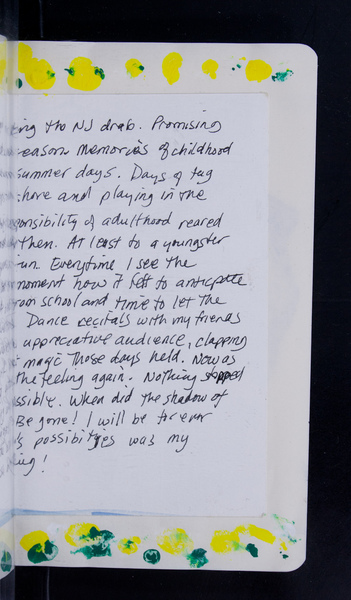 ing the NJ drab. Promising
season memories of childhood
summer days. Days of tag
shore and playing in the
ponsibility of adulthood reared
then. At least to a youngster
un. Everytime I see the
moment how it felt to anticipate
rom school and time to let the
Dance recitals with my friends
appreciative audience, clapping
magic those days held. Now as
the feeling again. Nothing stopped
ssible. When did the shadow of
Be gone! I will be forever
's possibities was my
ing!